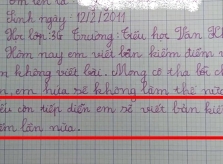 em tên là
Sinh ngày: 12/2/2011
Học lớp: 3G Trường: Tiểu học Văn
Hôm nay em viết bản kiểm điểm
không viết bài. Mong cô tha lỗi
em hứa sẽ không làm thế nữa
nếu còn tiếp diễn em sẽ viết bản kiểm
điểm lần nữa.